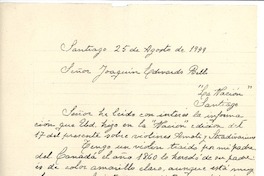 Santiago 25 de Agosto de 1944
Señor Joaquin Edwards Bello
"La Nacion"
Santiago
Señor he leido con interes la informa
cion que Ud. hizo en la "Nacion" edicion del
17 del presente sobre violines Amati y Stradivarius
Tengo un violin traido por mi padre
del Canadá el año 1860 lo heredo de su padre
es de color amarillo claro, aunque está muy